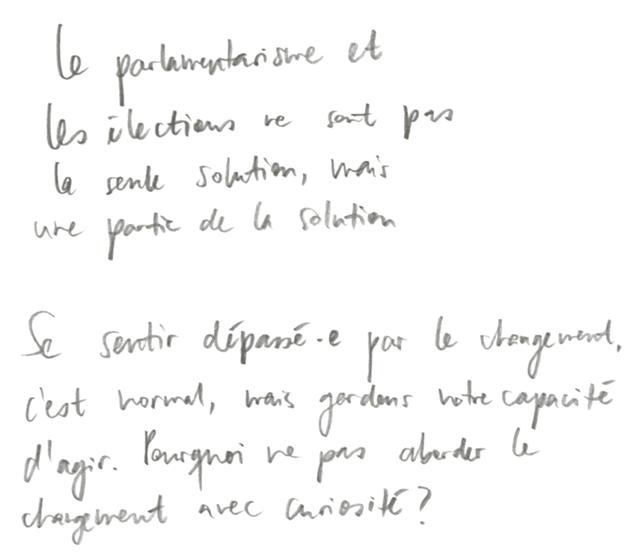 Le parlamentarisme et
les élections ne sont pas
la seule solution, mais
une partie de la solution
Se sentir dépassé·e par le changement,
c'est normal, mais gardons notre capacité
d'agir. Pourquoi ne pas aborder le
changement avec curiosité?